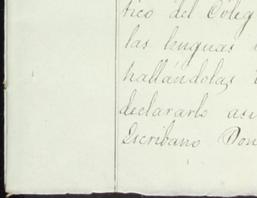 tico del Coleg
las lenguas
hallándolas
declararlo así
Escribano Don